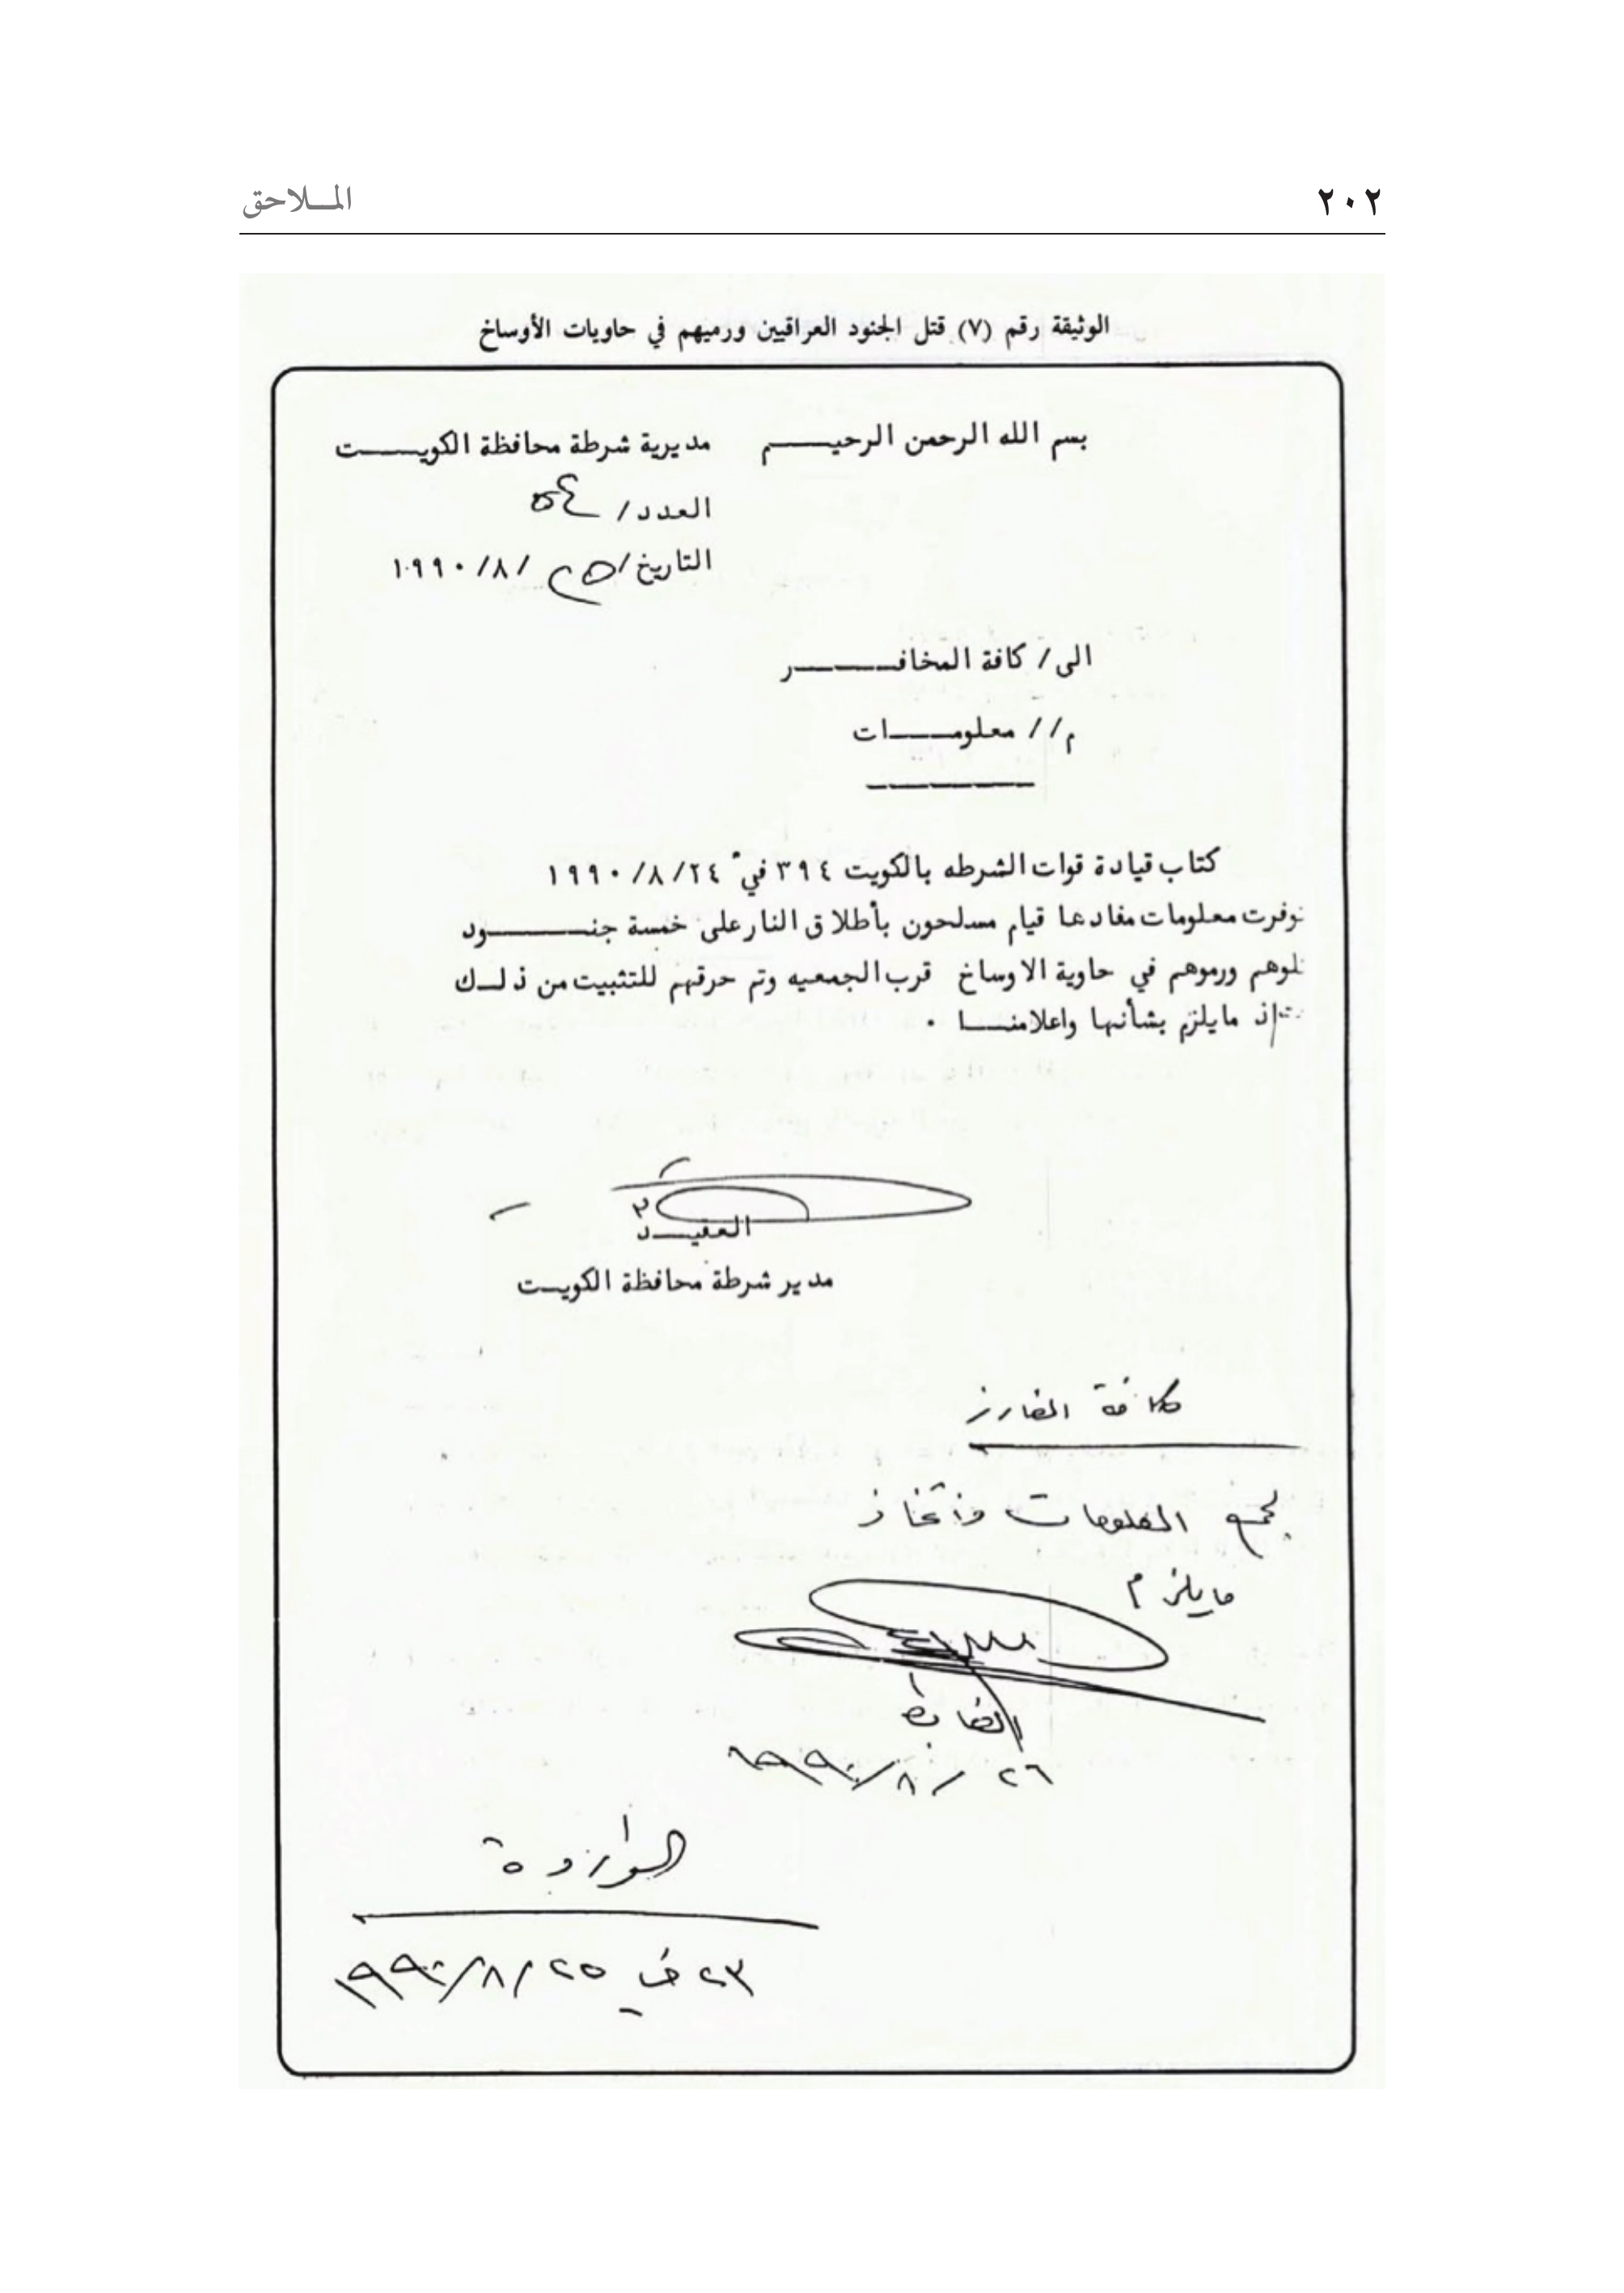 ٢٠٢
المـلاحق
الوثيقة رقم (٧) قتل الجنود العراقيين ورميهم في حاويات الأوساخ
بسم الله الرحمن الرحيم
مديرية شرطة محافظة الكويت
العدد/ ٥٤
التاريخ/ ٢٥ /٨/ ١٩٩٠
الى/ كافة المخافر
م// معلومات
كتاب قيادة قوات الشرطه بالكويت ٣٩٤ في ٢٤/ ٨/ ١٩٩٠
توفرت معلومات مفادها قيام مسلحون بأطلاق النار على خمسة جنود
تلوهم ورموهم في حاوية الاوساخ قرب الجمعيه وتم حرقهم للتثبيت من ذلك
تاذ مايلزم بشأنها واعلامنا .
العقيد
مدير شرطة محافظة الكويت
كافة المفارز
لجمع المعلومات واتخاذ
مايلزم
الضابط
٢٦ / ٨ / ١٩٩٠
الواردة
٢٣ في ٢٥ / ٨ / ١٩٩٠